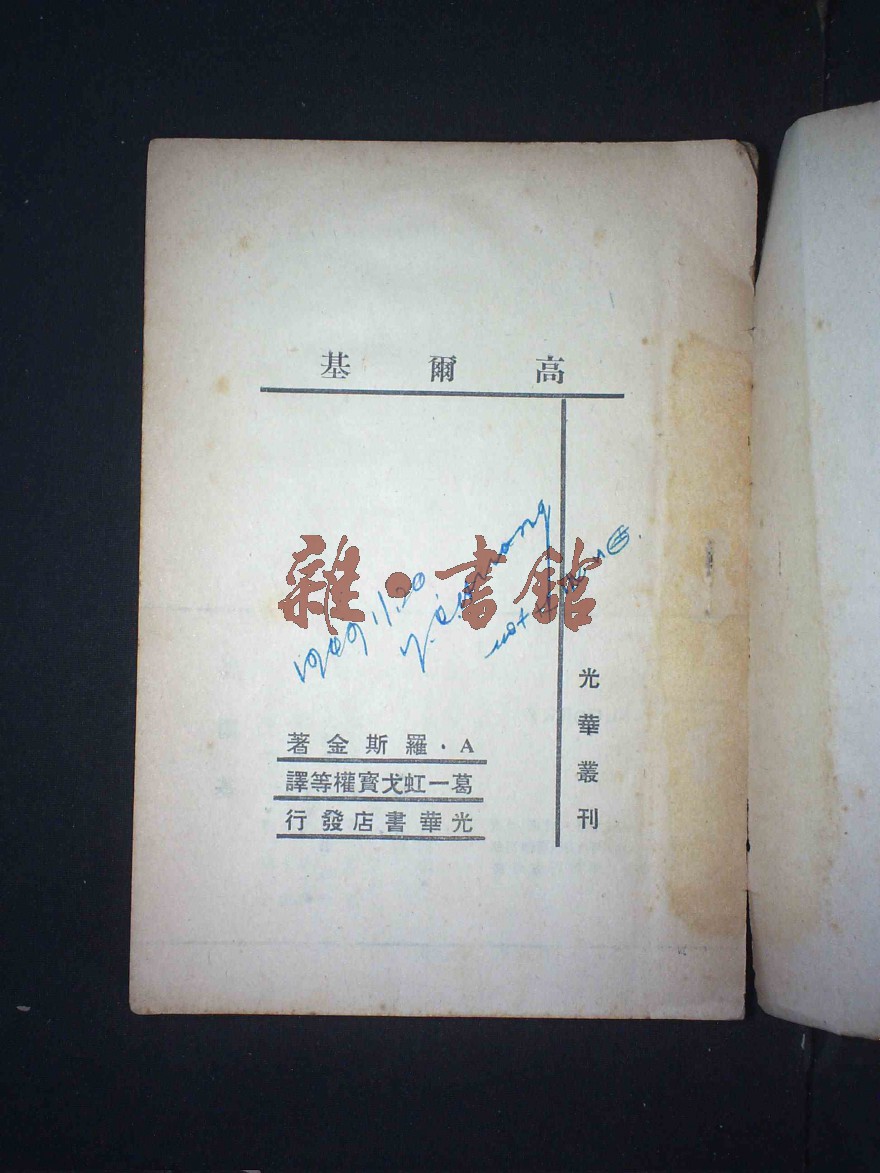 高爾基
雜·書館
1949 11/20
光華叢刊
A·羅斯金著
葛一虹戈寳權等譯
光華書店發行